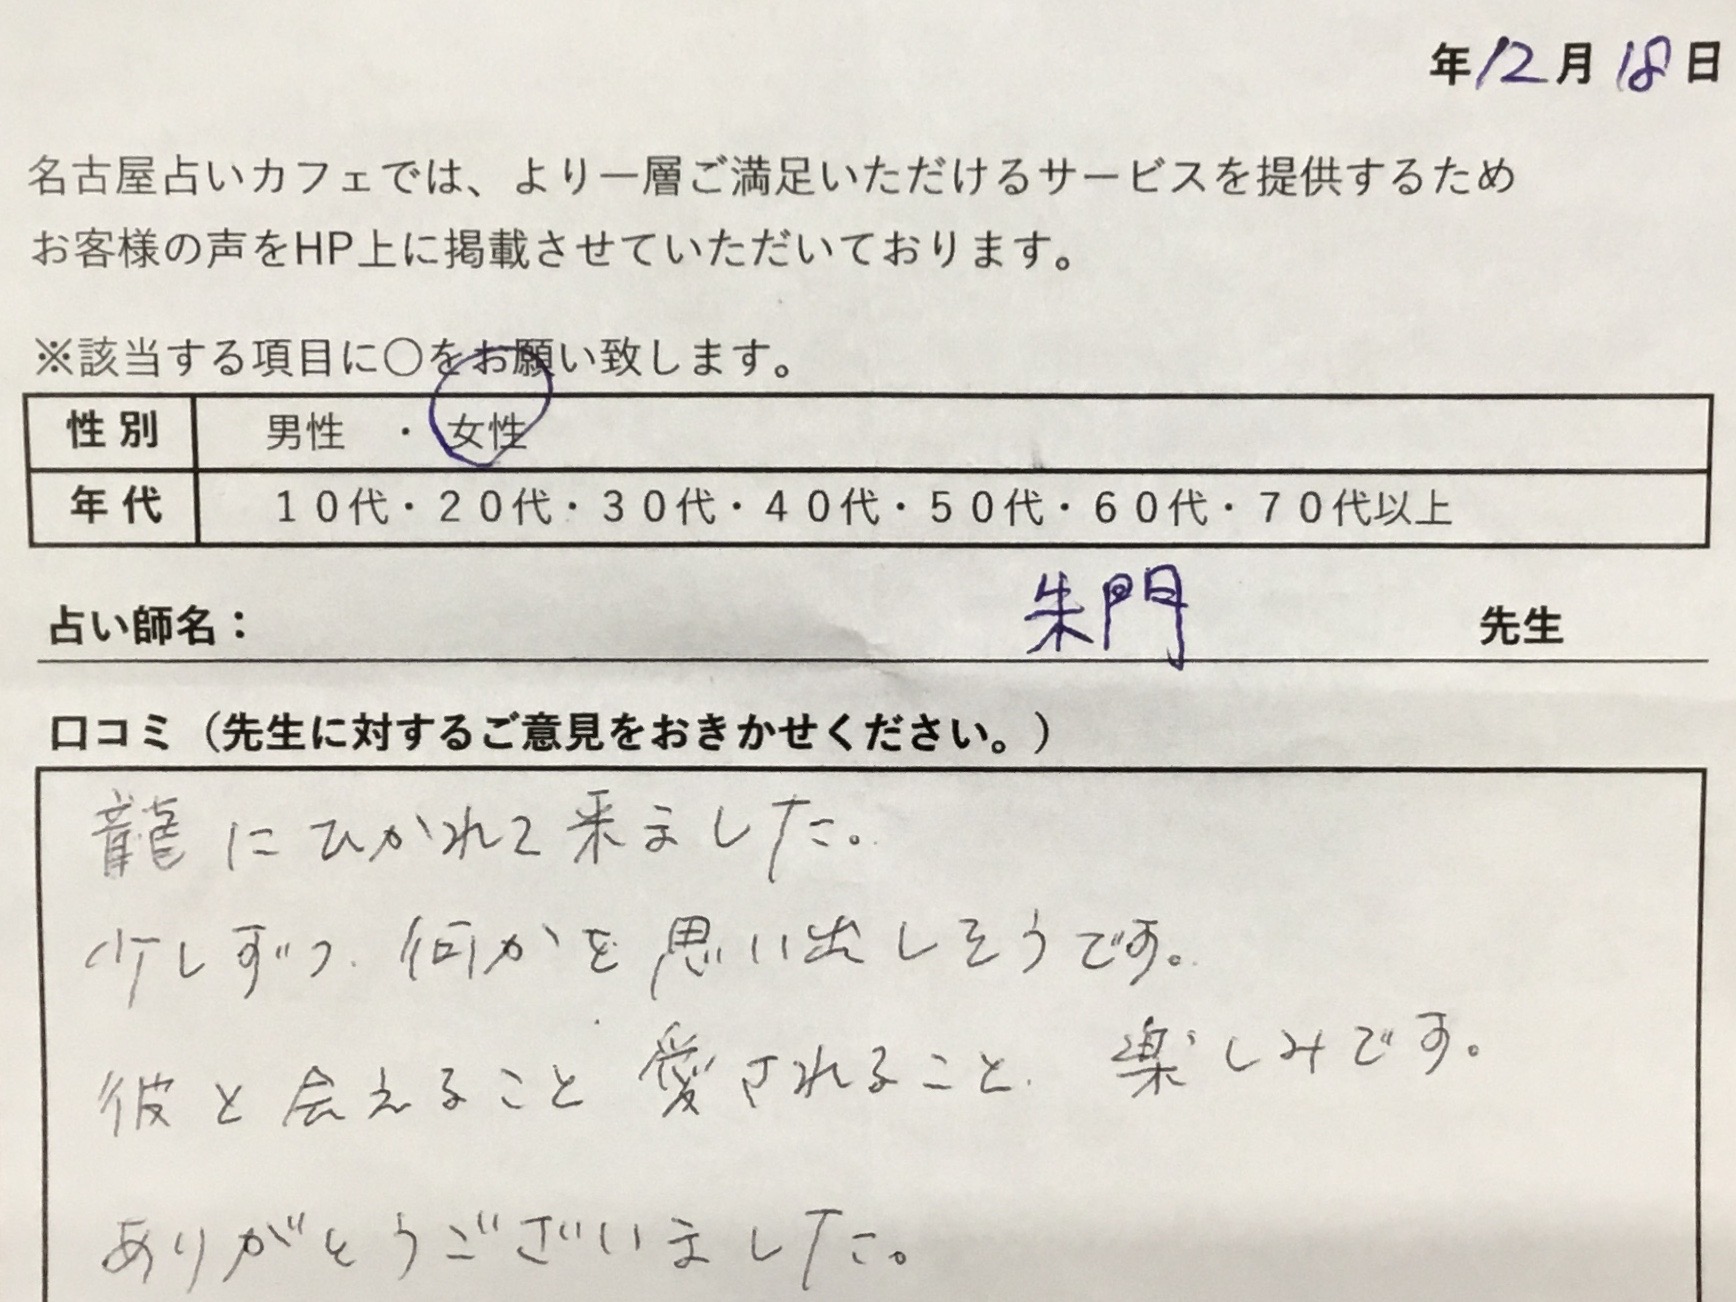 年12月18日
名古屋占いカフェでは、より一層ご満足いただけるサービスを提供するため
お客様の声をHP上に掲載させていただいております。
※該当する項目に〇をお願い致します。
性別 男性 ・ 女性
年代 10代・20代・30代・40代・50代・60代・70代以上
占い師名： 朱門 先生
口コミ（先生に対するご意見をおきかせください。）
龍にひかれて来ました。
少しずつ、何かを思い出しそうです。
彼と会えること 愛されること、楽しみです。
ありがとうございました。